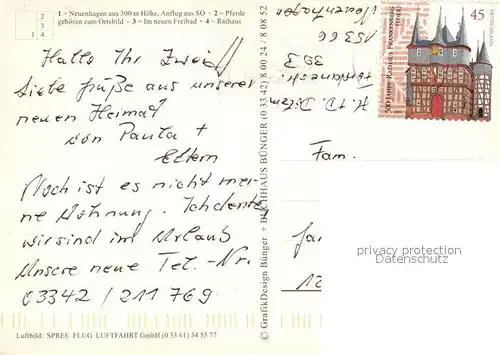 1 – Neuenhagen aus 300 m Höhe, Anflug aus SO · 2 – Pferde
gehören zum Ortsbild · 3 – Im neuen Freibad · 4 – Rathaus
2
3
1 4
Hallo Ihr Zwei!
Liebe Grüße aus unserer
neuen Heimat
von Paula +
Eltern
Noch ist es nicht mei-
ne Wohnung. Ich denke,
wir sind im Urlaub
Unsere neue Tel.-Nr.
03342/211 769
Luftbild: SPREE FLUG LUFTFAHRT GmbH (0 33 61) 34 55 77
© GrafikDesign Bünger + BUCHHAUS BÜNGER (0 33 42) 8 00 24 / 8 08 52
39 3
15366
Neuenhagen
500 Jahre Rathaus Frankenberg
(Eder)
45
DEUTSCHLAND
Fam.
privacy protection
Datenschutz